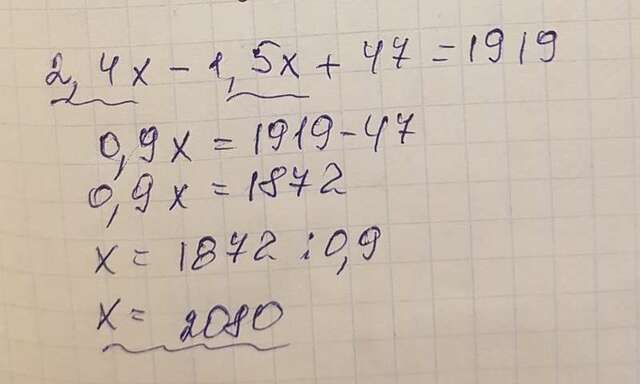 2,4x - 1,5x + 47 = 1919
0,9x = 1919 - 47
0,9x = 1872
x = 1872 : 0,9
x = 2080